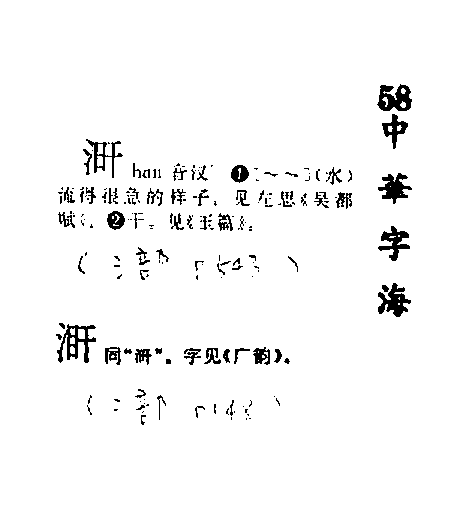 58
中華字海
han 音汉 ❶[~~](水)
流得很急的样子。见左思《吴都
赋》。❷干。见《玉篇》。
(氵部 P543)
同“ ”。字见《广韵》。
(部 P148)